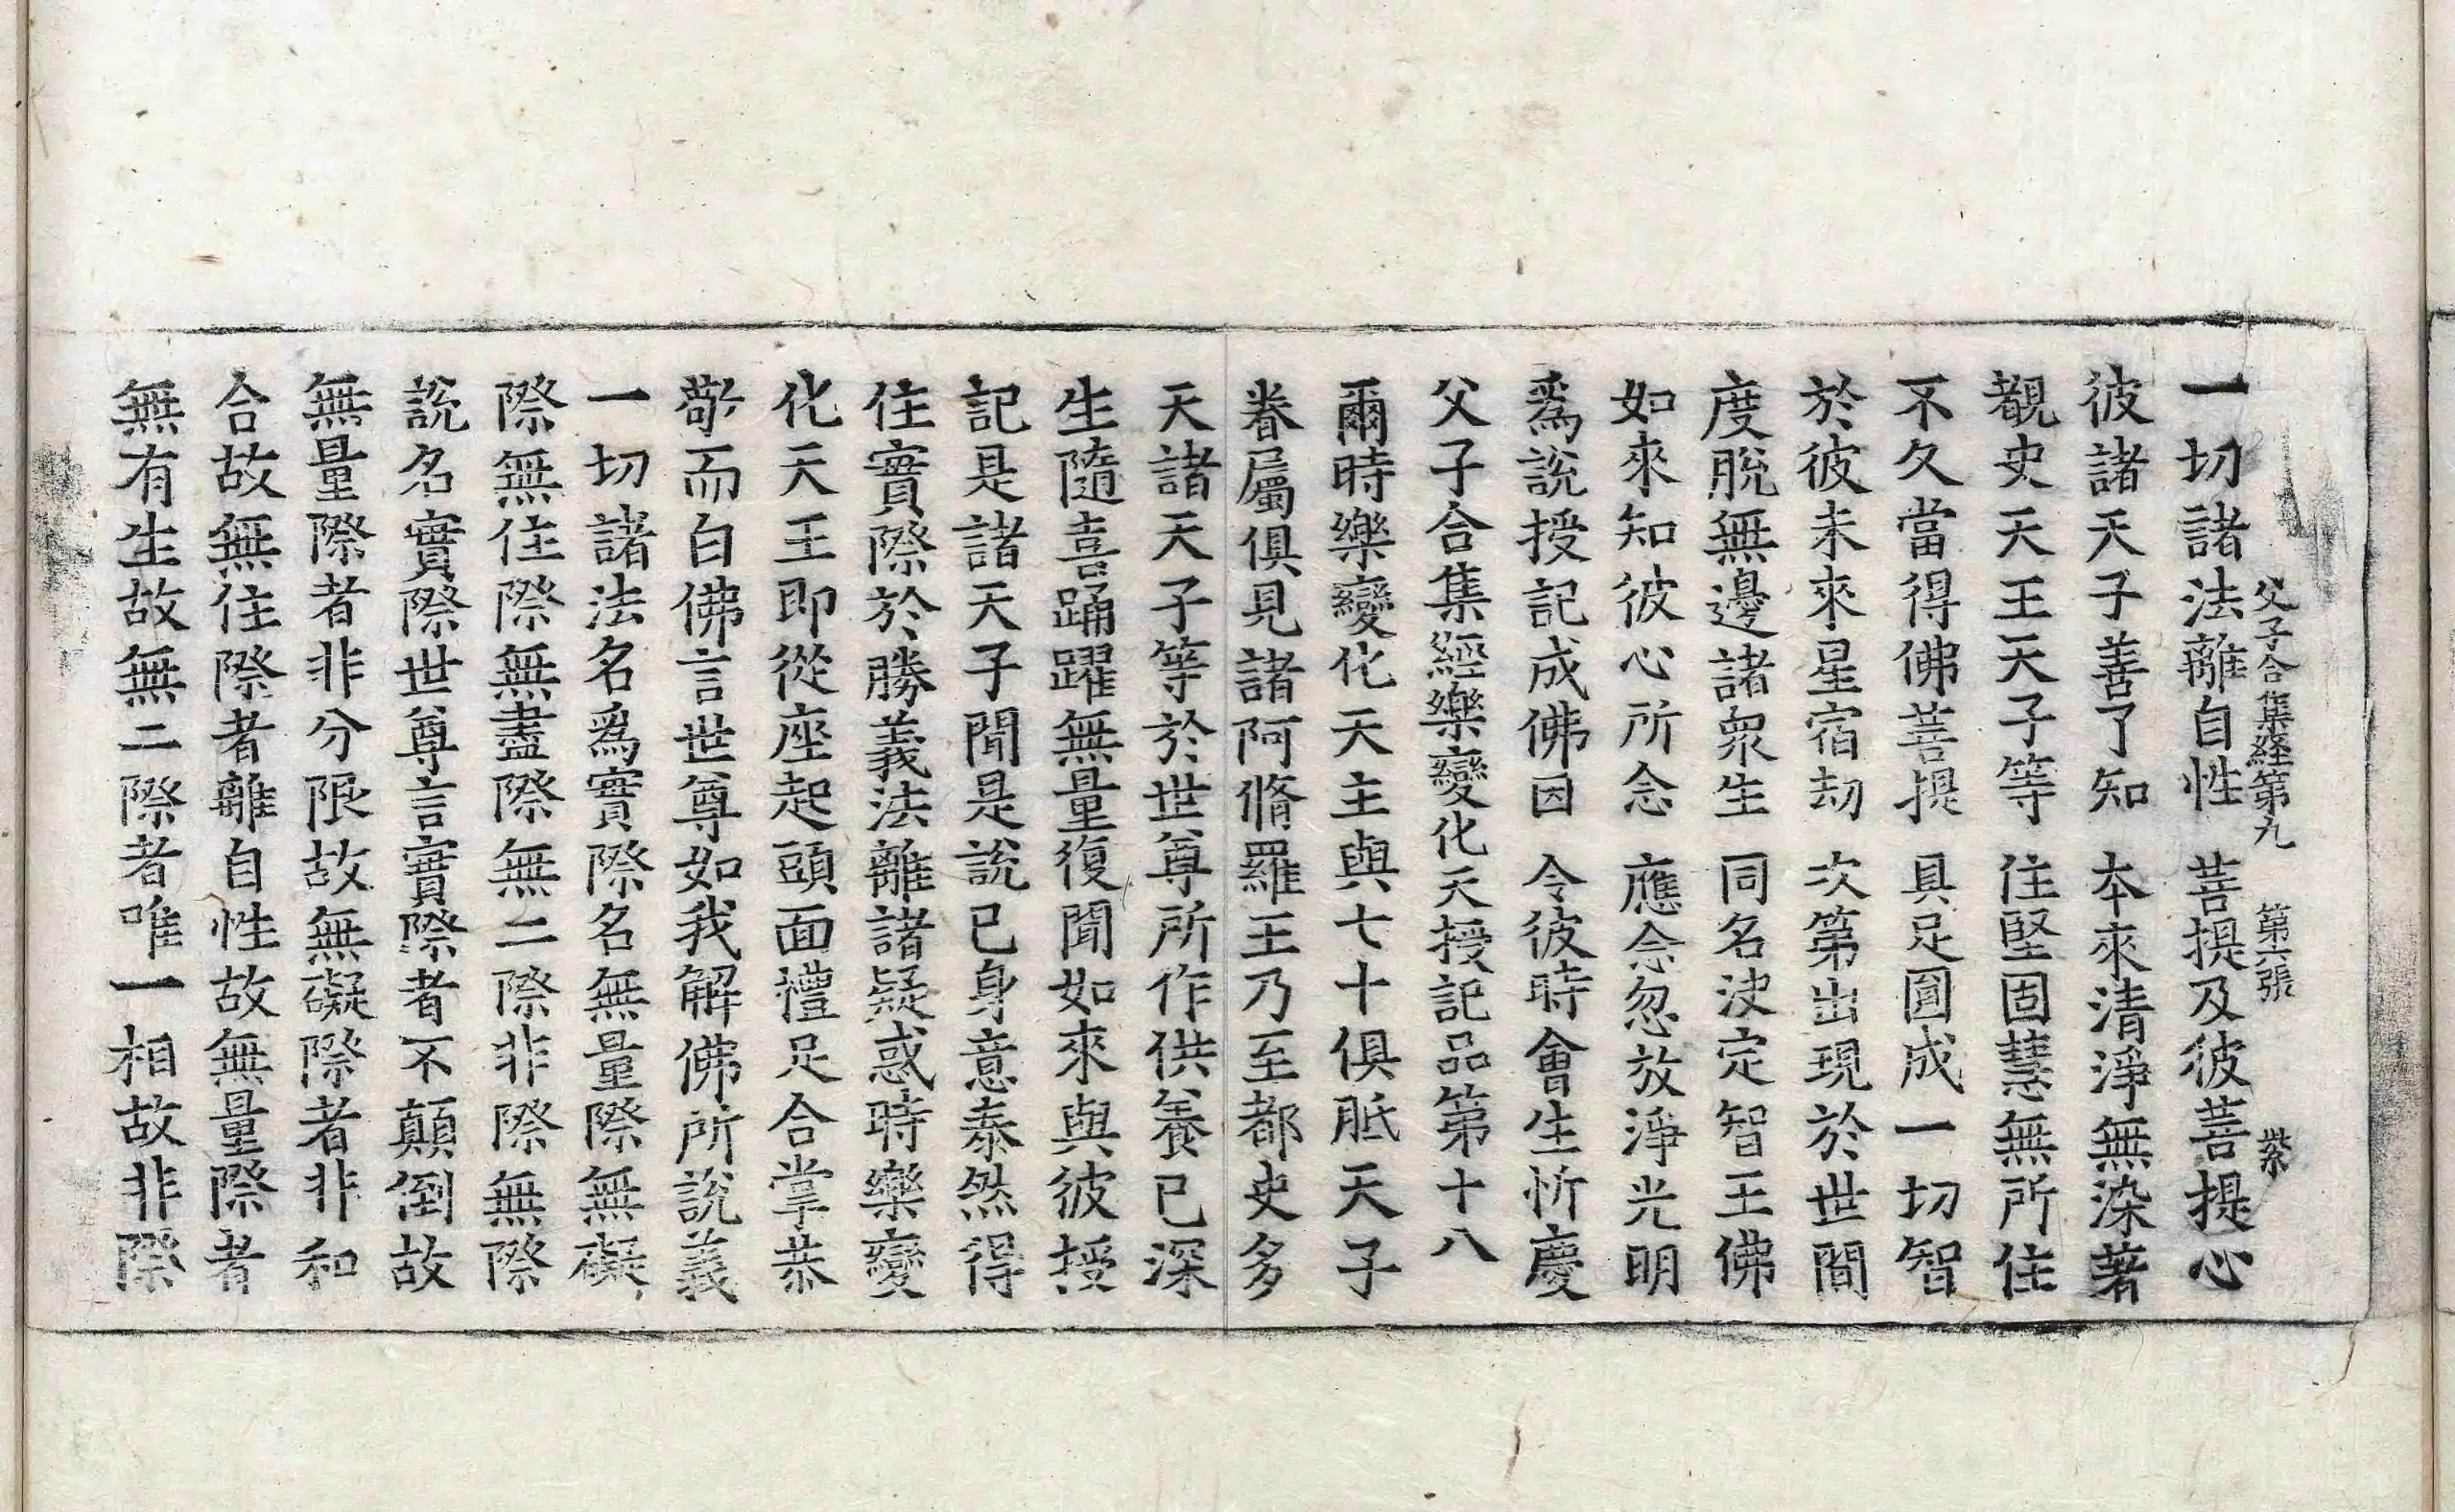 父子合集經第九 第六張 紫
一切諸法離自性 菩提及彼菩提心
彼諸天子善了知 本來清淨無染著
覩史天王天子等 住堅固慧無所住
不久當得佛菩提 具足圓成一切智
於彼未來星宿劫 次第出現於世間
度脫無邊諸衆生 同名決定智王佛
如來知彼心所念 應念忽放淨光明
爲說授記成佛因 令彼時會生忻慶
父子合集經樂變化天授記品第十八
爾時樂變化天主與七十俱胝天子
眷屬俱見諸阿脩羅王乃至都史多
天諸天子等於世尊所作供養已深
生隨喜踊躍無量復聞如來與彼授
記是諸天子聞是說已身意泰然得
住實際於勝義法離諸疑惑時樂變
化天王即從座起頭面禮足合掌恭
敬而白佛言世尊如我解佛所說義
一切諸法名爲實際名無量際無礙
際無住際無盡際無二際非際無際
說名實際世尊言實際者不顛倒故
無量際者非分限故無礙際者非和
合故無住際者離自性故無量際者
無有生故無二際者唯一相故非際